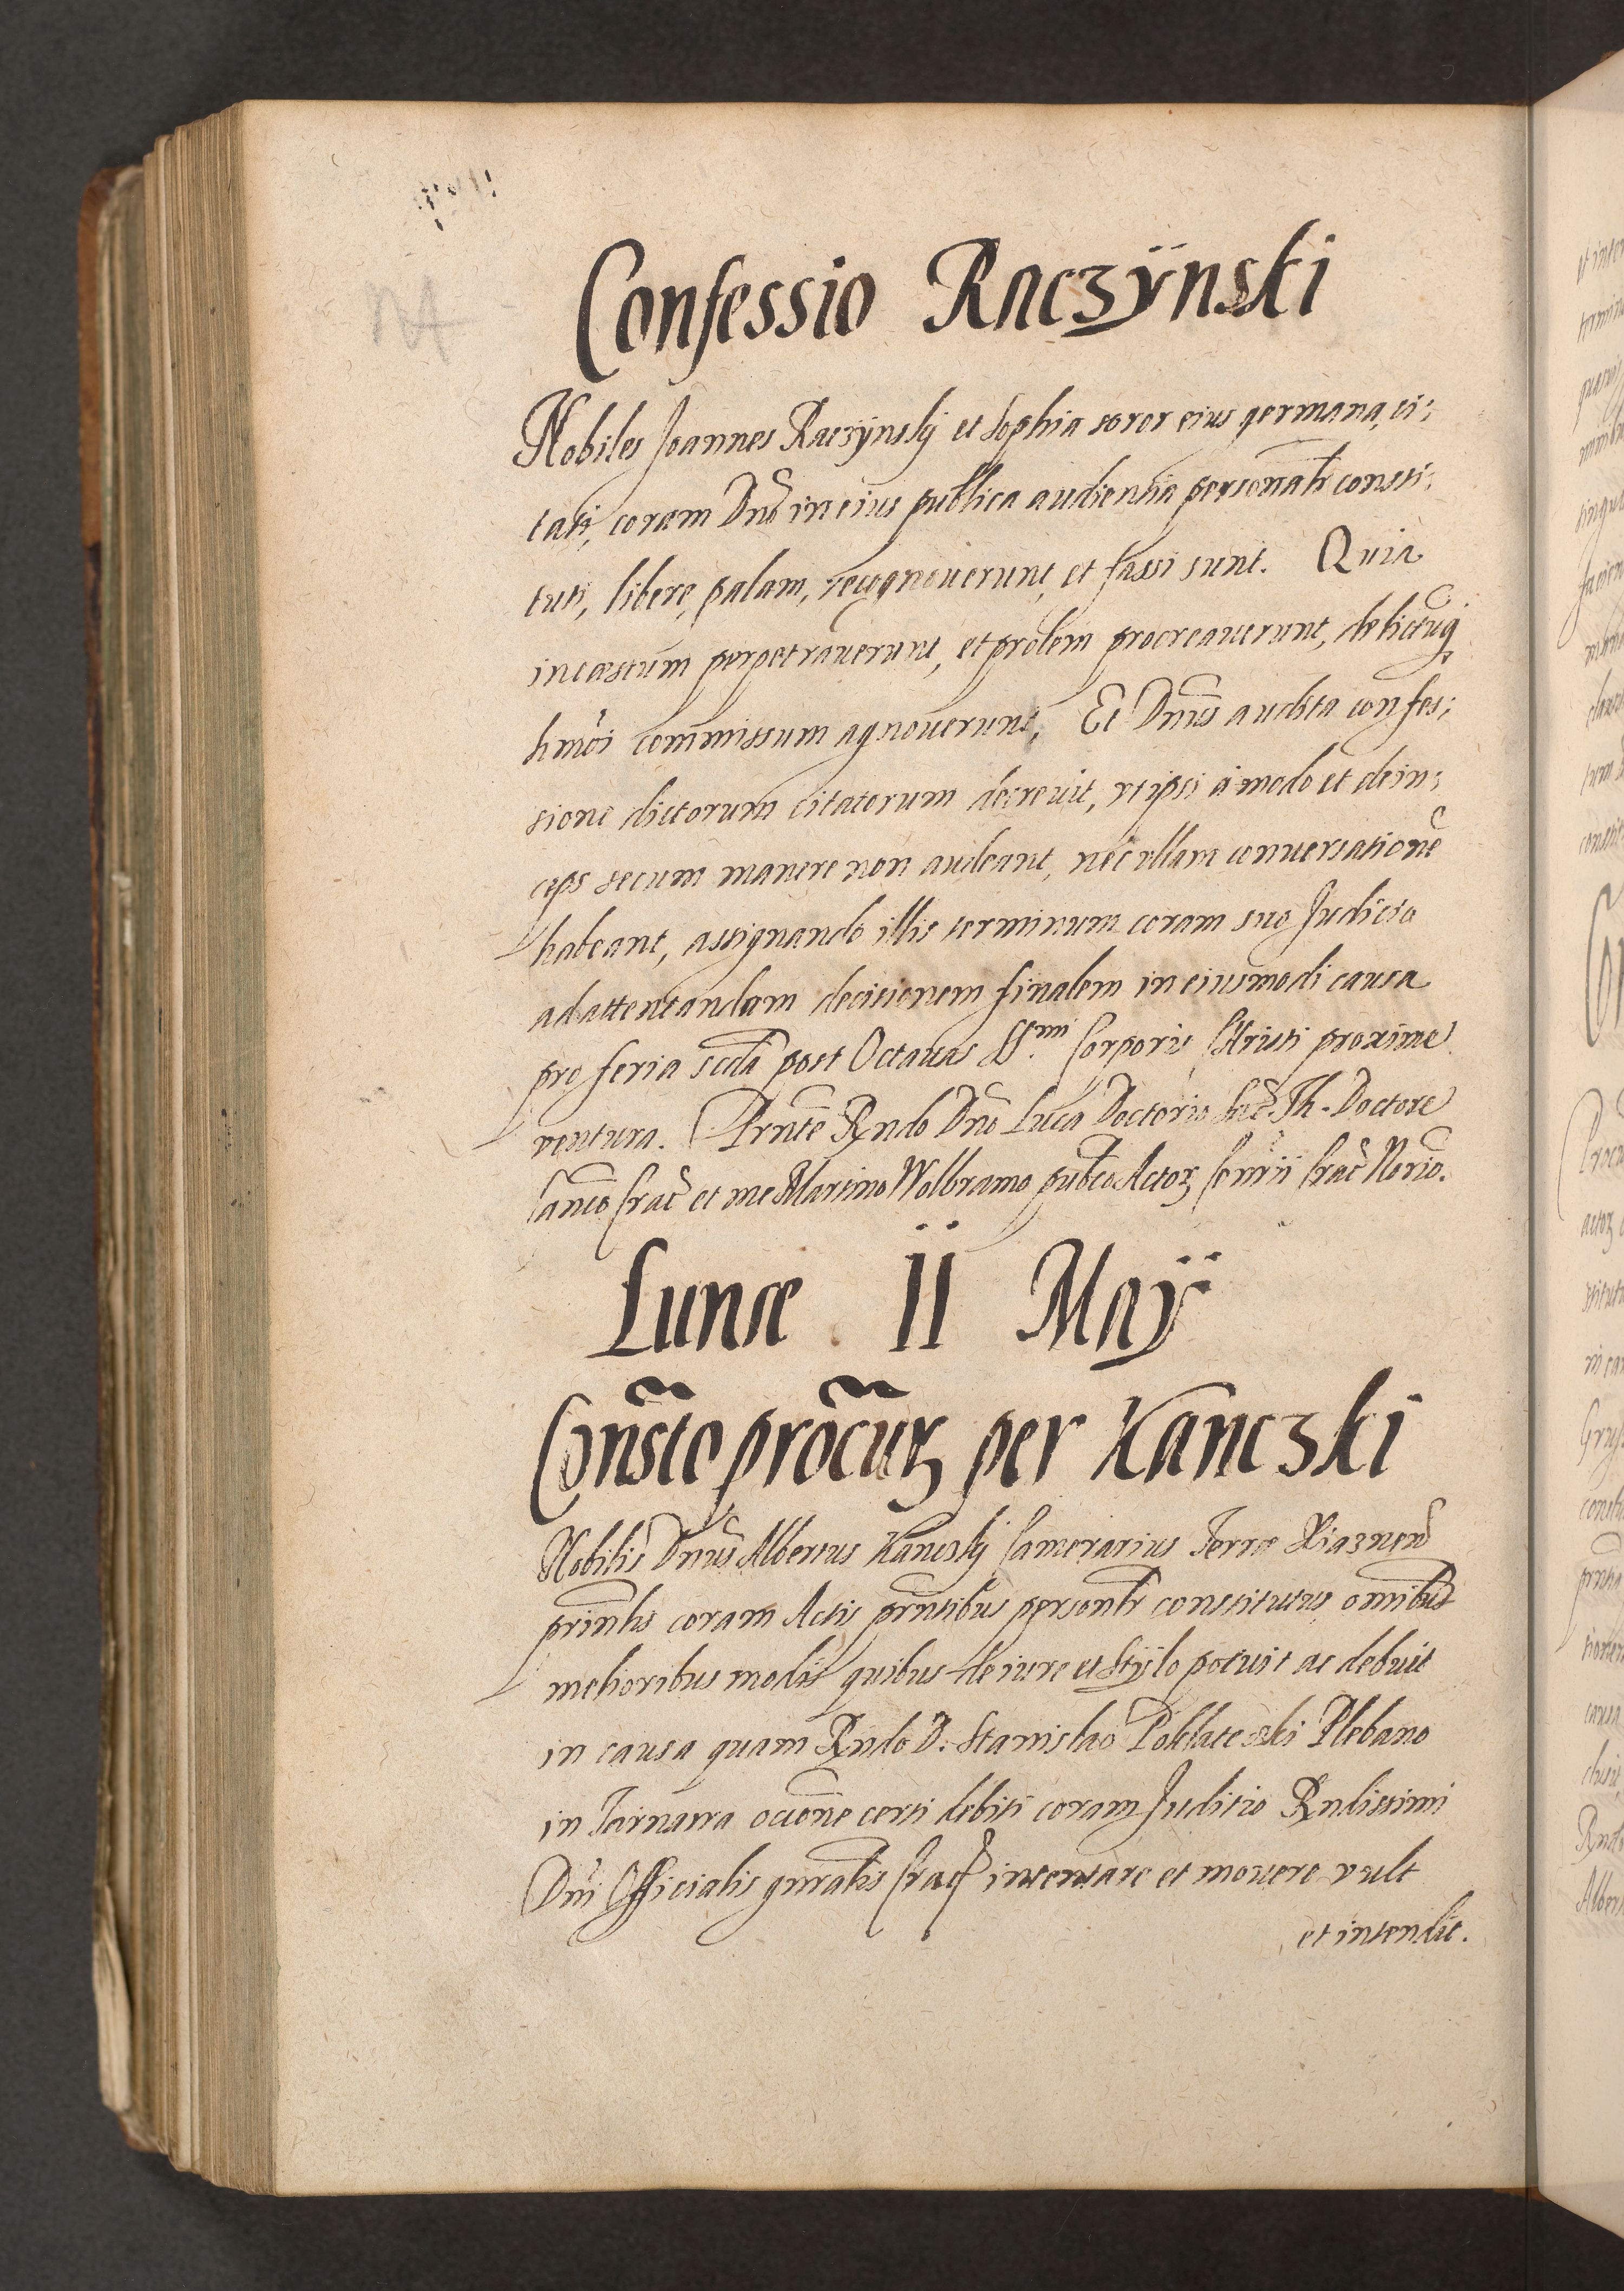 Confessio Raczÿnski
Nobiles Joannes Raczÿnsky et Sophia soror eius germana, ci:
tati, coram Dno in eius publica audientia personalr consti:
tuti, libere, palam, recognouerunt, et fassi sunt. Quia
incæstum perpetrauerunt, et prolem procreauerunt, delictuq
hmoi commissum agnouerunt, Et Dnus audita confes:
sione dictorum citatorum decreuit, vt ipsi á modo et dein:
ceps secum manere non audeant, nec vllam conuersatione
habeant, assignando illis terminum coram suo Judicio
ad attentandam decisionem finalem in eiusmodi causa
pro feria scda post Octauas SS.mi Corporis Christi proxime
ventura. Prnte Rndo Dno Luca Doctoris Th. Doctore
Canco Crac et me Martino Wolbramo pubco Actor Crac Norio.
Lunæ 11 Maÿ
Consto procur per Kanczki
Nobilis Dnus Albertus Kanczky Camerarius Terræ Xiaznen
printis coram Actis prntibus personlr constitutus omnibus
melioribus modis quibus de iure et Stÿlo potuit ac debuit
in causa quam Rndo D. Stanislao Pokłateczki Plebano
in occone certi debiti coram Juditio Rndissimi
Dni Officialis gnralis Crac intentare et mouere vult
et intendit.